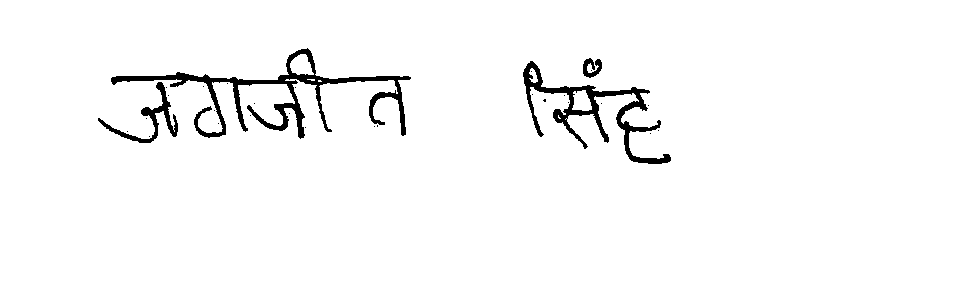 जगजीत सिंह